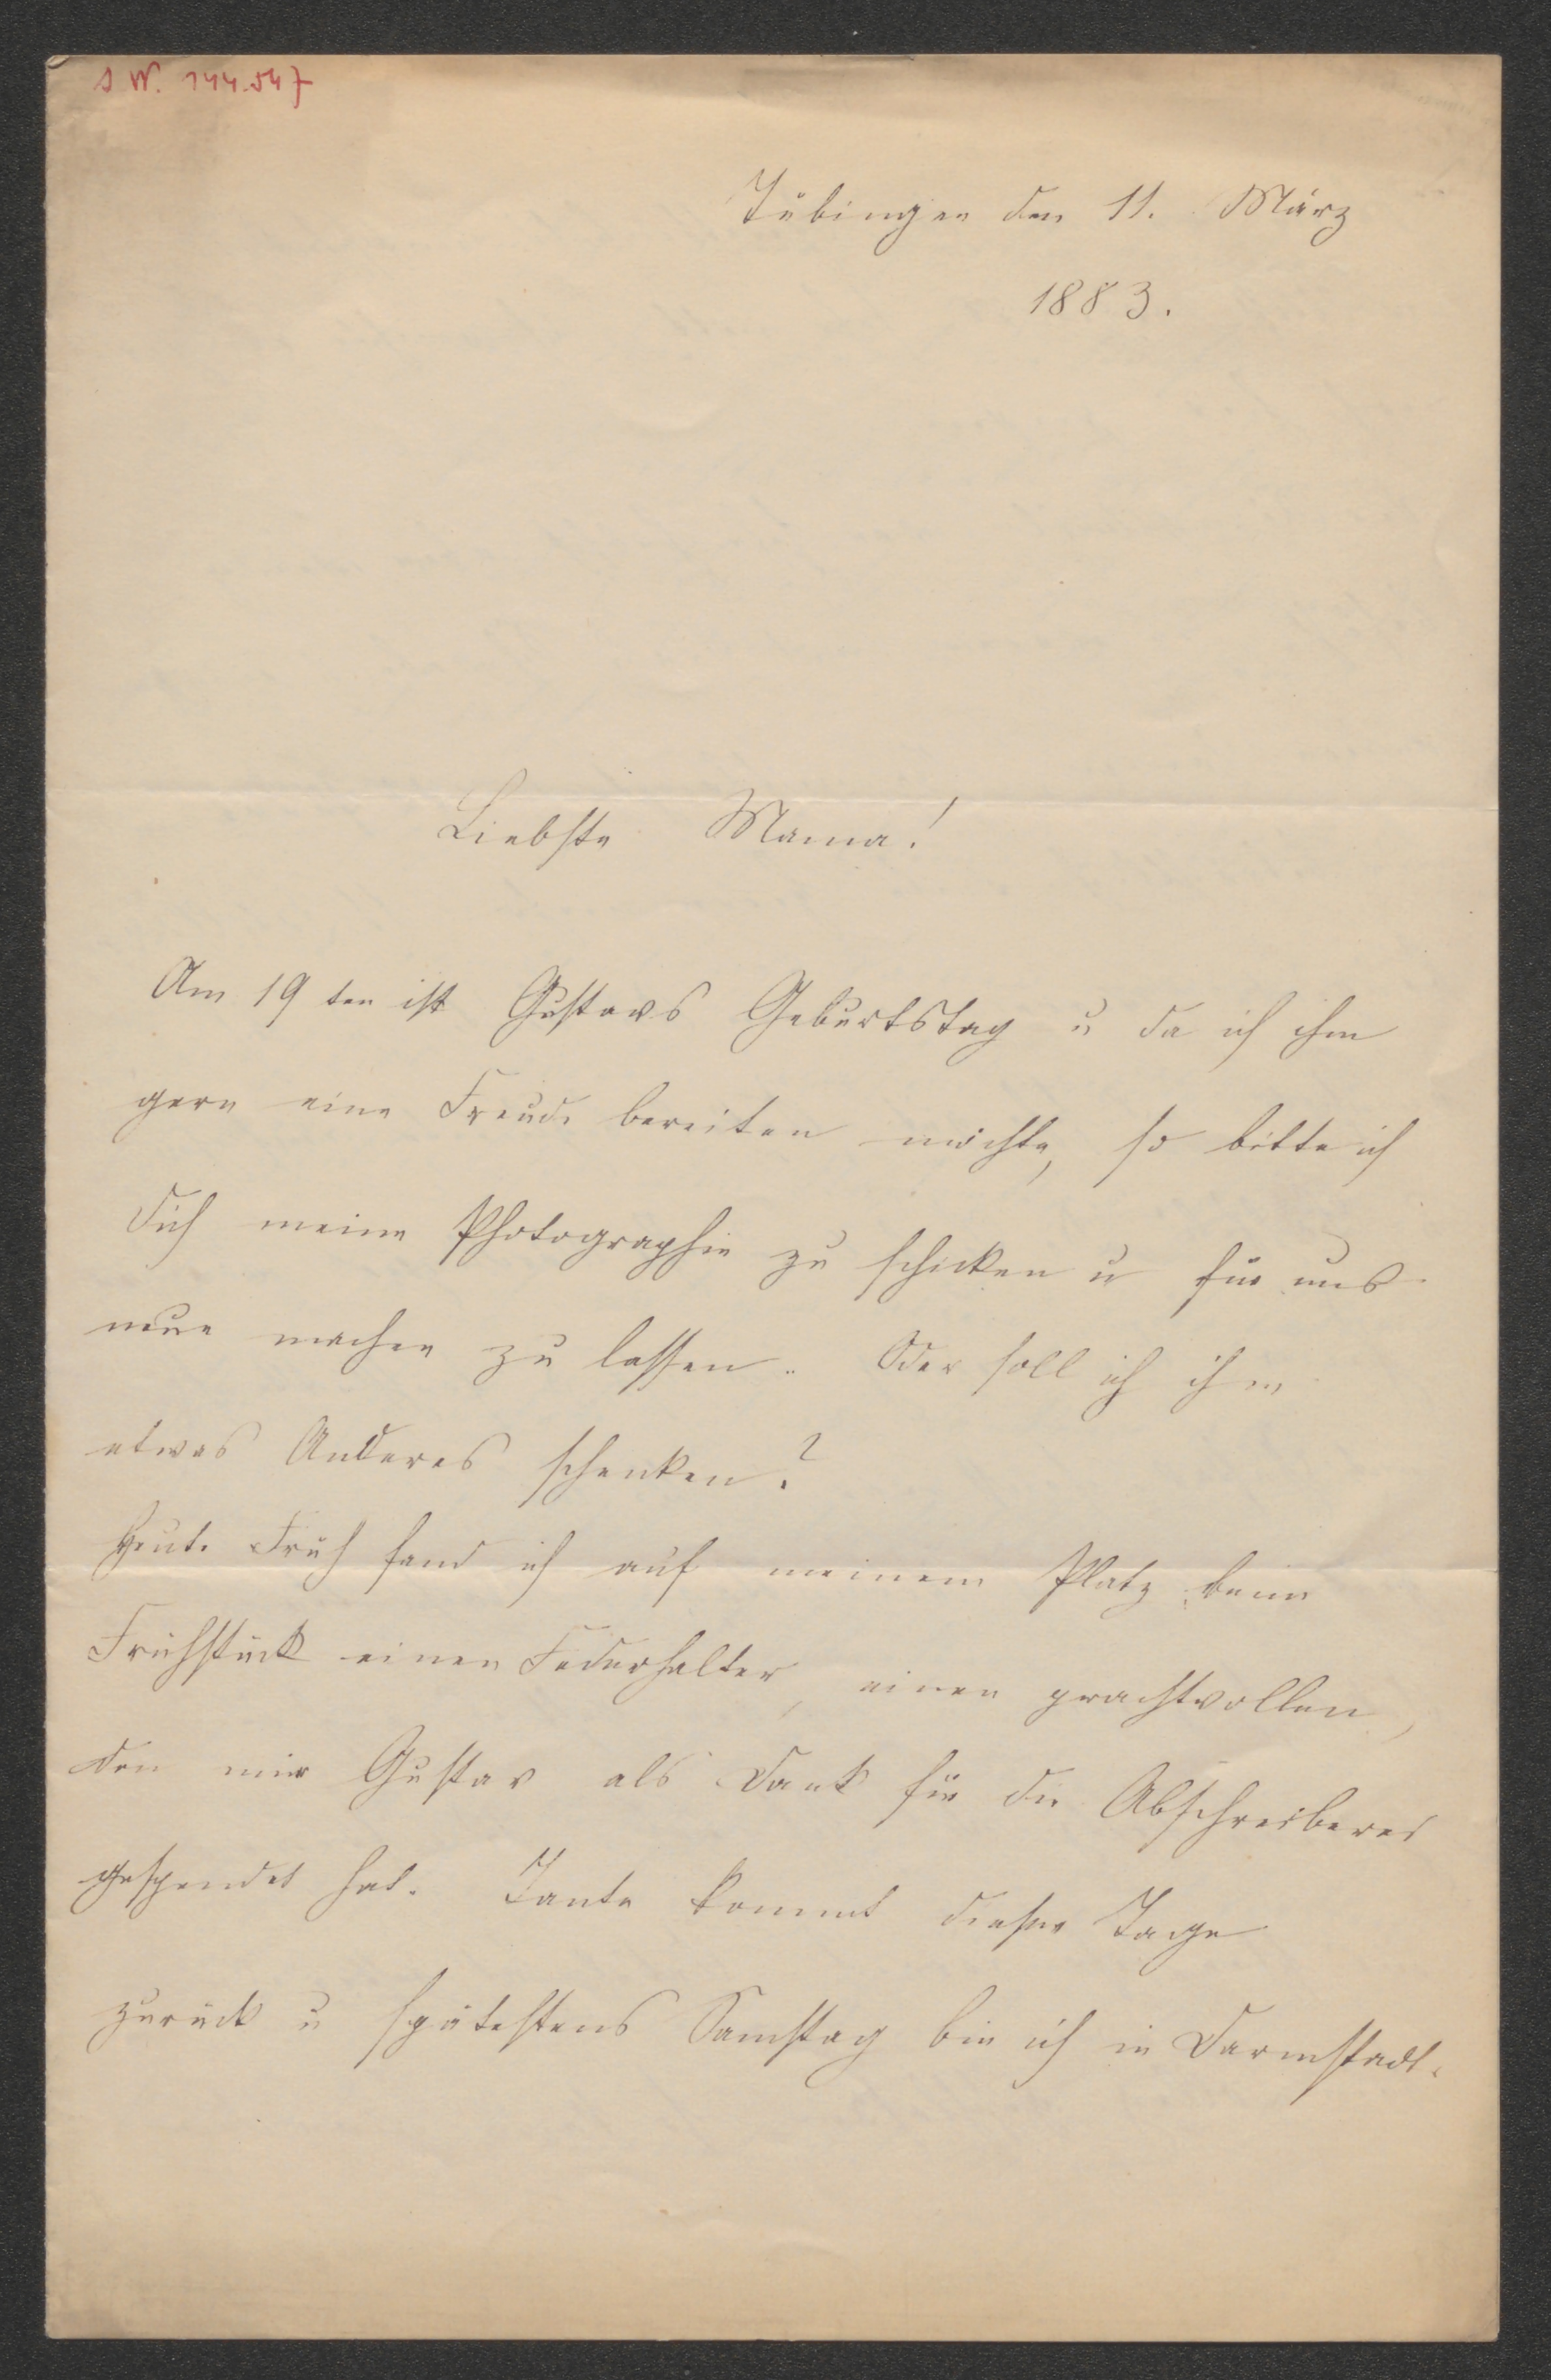 I N. 144.547
Tübingen den 11. März
1883.
Liebste Mama!
Am 19 ten ist Gustavs Geburtstag u da ich ihm
gern eine Freude bereiten möchte, so bitte ich
Dich meine Photographie zu schicken u für uns
neue machen zu lassen. Oder soll ich ihm
etwas Anderes schenken?
Heute Früh fand ich auf meinem Platz beim
Frühstück einen Federhalter, einen prachtvollen,
den mir Gustav als Dank für die Abschreiberei
gespendet hat. Tante kommt dieser Tage
zurück u spätestens Samstag bin ich in Darmstadt.